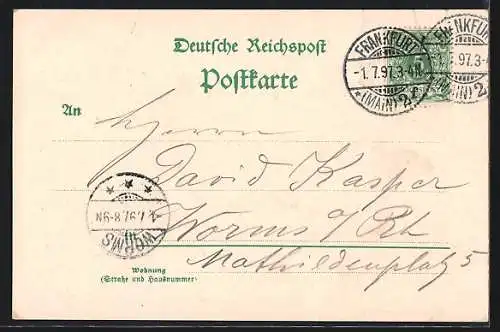 Deutsche Reichspost
Postkarte
FRANKFURT
-1.7.97.3-4N.
*(MAIN)2
FRANKFURT
-1.7.97.3-4
(MAIN)2
5
An
Herrn
David Kasper
Worms a/Rh
Mathildenplatz 5
WORMS
1.7.97.8-9N
Wohnung
(Straße und Hausnummer)